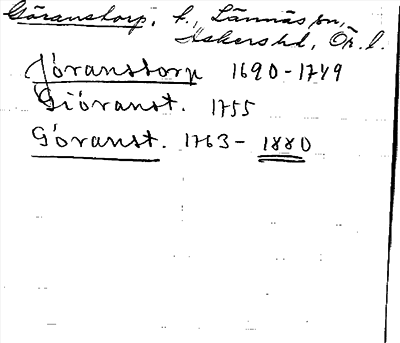 Göranstorp, t., Lännäs sn,
Askers hd, Ör. l.
Jöranstorp 1690-1749
Giöranst. 1755
Göranst. 1763- 1880